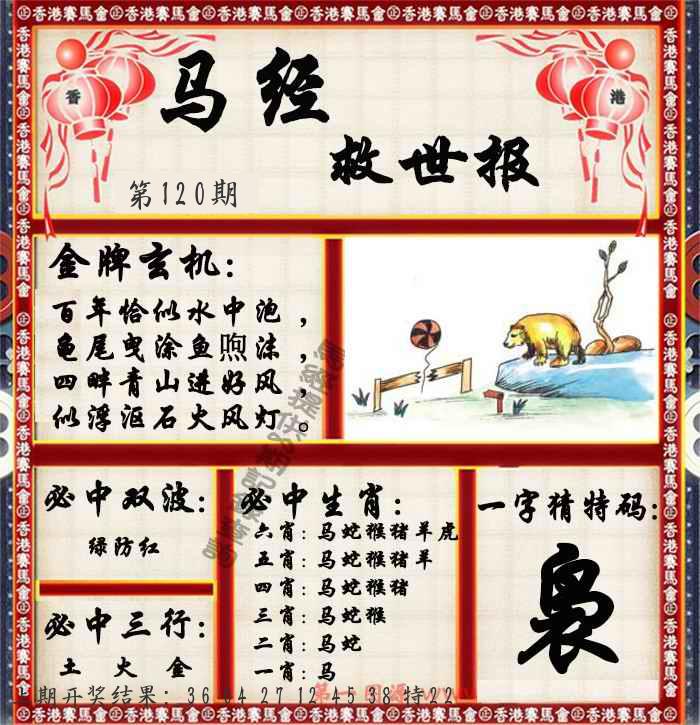 香港賽馬會
香 港
马经
救世报
第120期
金牌玄机：
百年恰似水中泡，
龟尾曳涂鱼喣沫，
四畔青山进好风，
似浮沤石火风灯。
必中双波：
绿防红
必中三行：
土 火 金
必中生肖：
六肖：马蛇猴猪羊虎
五肖：马蛇猴猪羊
四肖：马蛇猴猪
三肖：马蛇猴
二肖：马蛇
一肖：马
一字猜特码：
袅
期开奖结果：36 04 27 12 45 38 特22